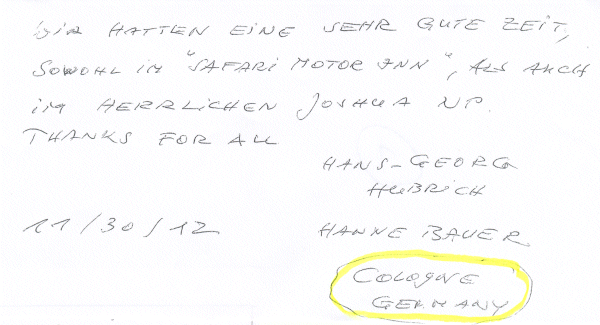 WIR HATTEN EINE SEHR GUTE ZEIT,
SOWOHL IM "SAFARI MOTOR INN", ALS AUCH
IM HERRLICHEN JOSHUA NP.
THANKS FOR ALL
HANS-GEORG
HUBRICH
11/30/12
HANNE BAUER
COLOGNE
GERMANY